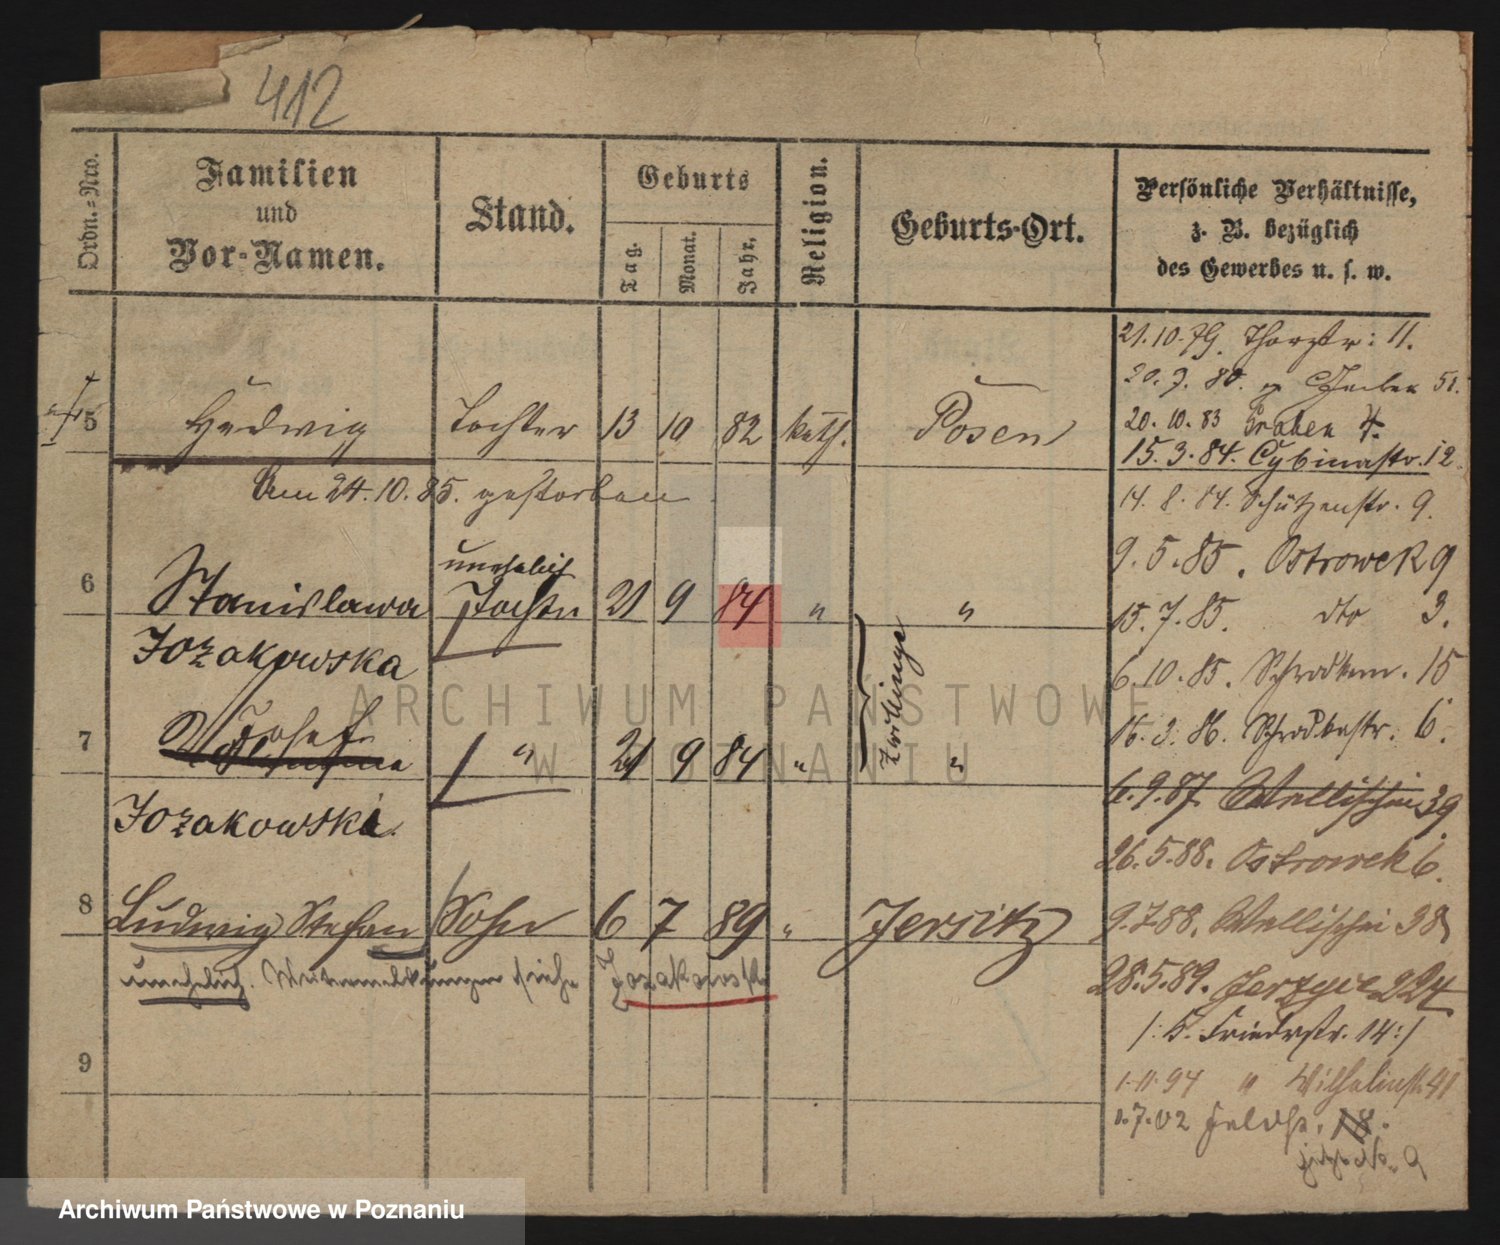 412
Ordn.-Nro.
Familien
und
Vor-Namen.
Stand.
Geburts
Tag.
Monat.
Jahr.
Religion.
Geburts-Ort.
Persönliche Verhältnisse,
z. B. bezüglich
des Gewerbes u. s. w.
5 Hedwig Tochter 13 10 82 kath. Posen
Am 24.10.85. gestorben
6 Stanislawa unehelich Tochter 21 9 84 " "
Jozakowska
7 Josef " 21 9 84 " "
Zwillinge
Jozakowski
8 Ludwig Stefan Sohn 6 7 89 " Jersitz
unehelich. siehe Jozakowski
9
21.10.79. Thorstr: 11.
20. 10. 83 Graben 4.
15. 3. 84. Cybinastr. 12.
14. 8. 84. Schützenstr. 9.
9. 5. 85. Ostrowek 9
15. 7. 85. dto 3.
6. 10. 85. Schrodkam. 15
16. 3. 86. Schrodkastr. 6.
6. 9. 87. Wallischei 39
26. 5. 88. Ostrowek 6.
9. 7. 88. Wallischei 38
28. 5. 89. Jerzyce 224
/: K. Friedrstr. 14 :/
1. 11. 94 " Wilhelmstr. 41
1. 7. 02 Feldstr. 18.
ARCHIWUM PAŃSTWOWE
W POZNANIU
Archiwum Państwowe w Poznaniu